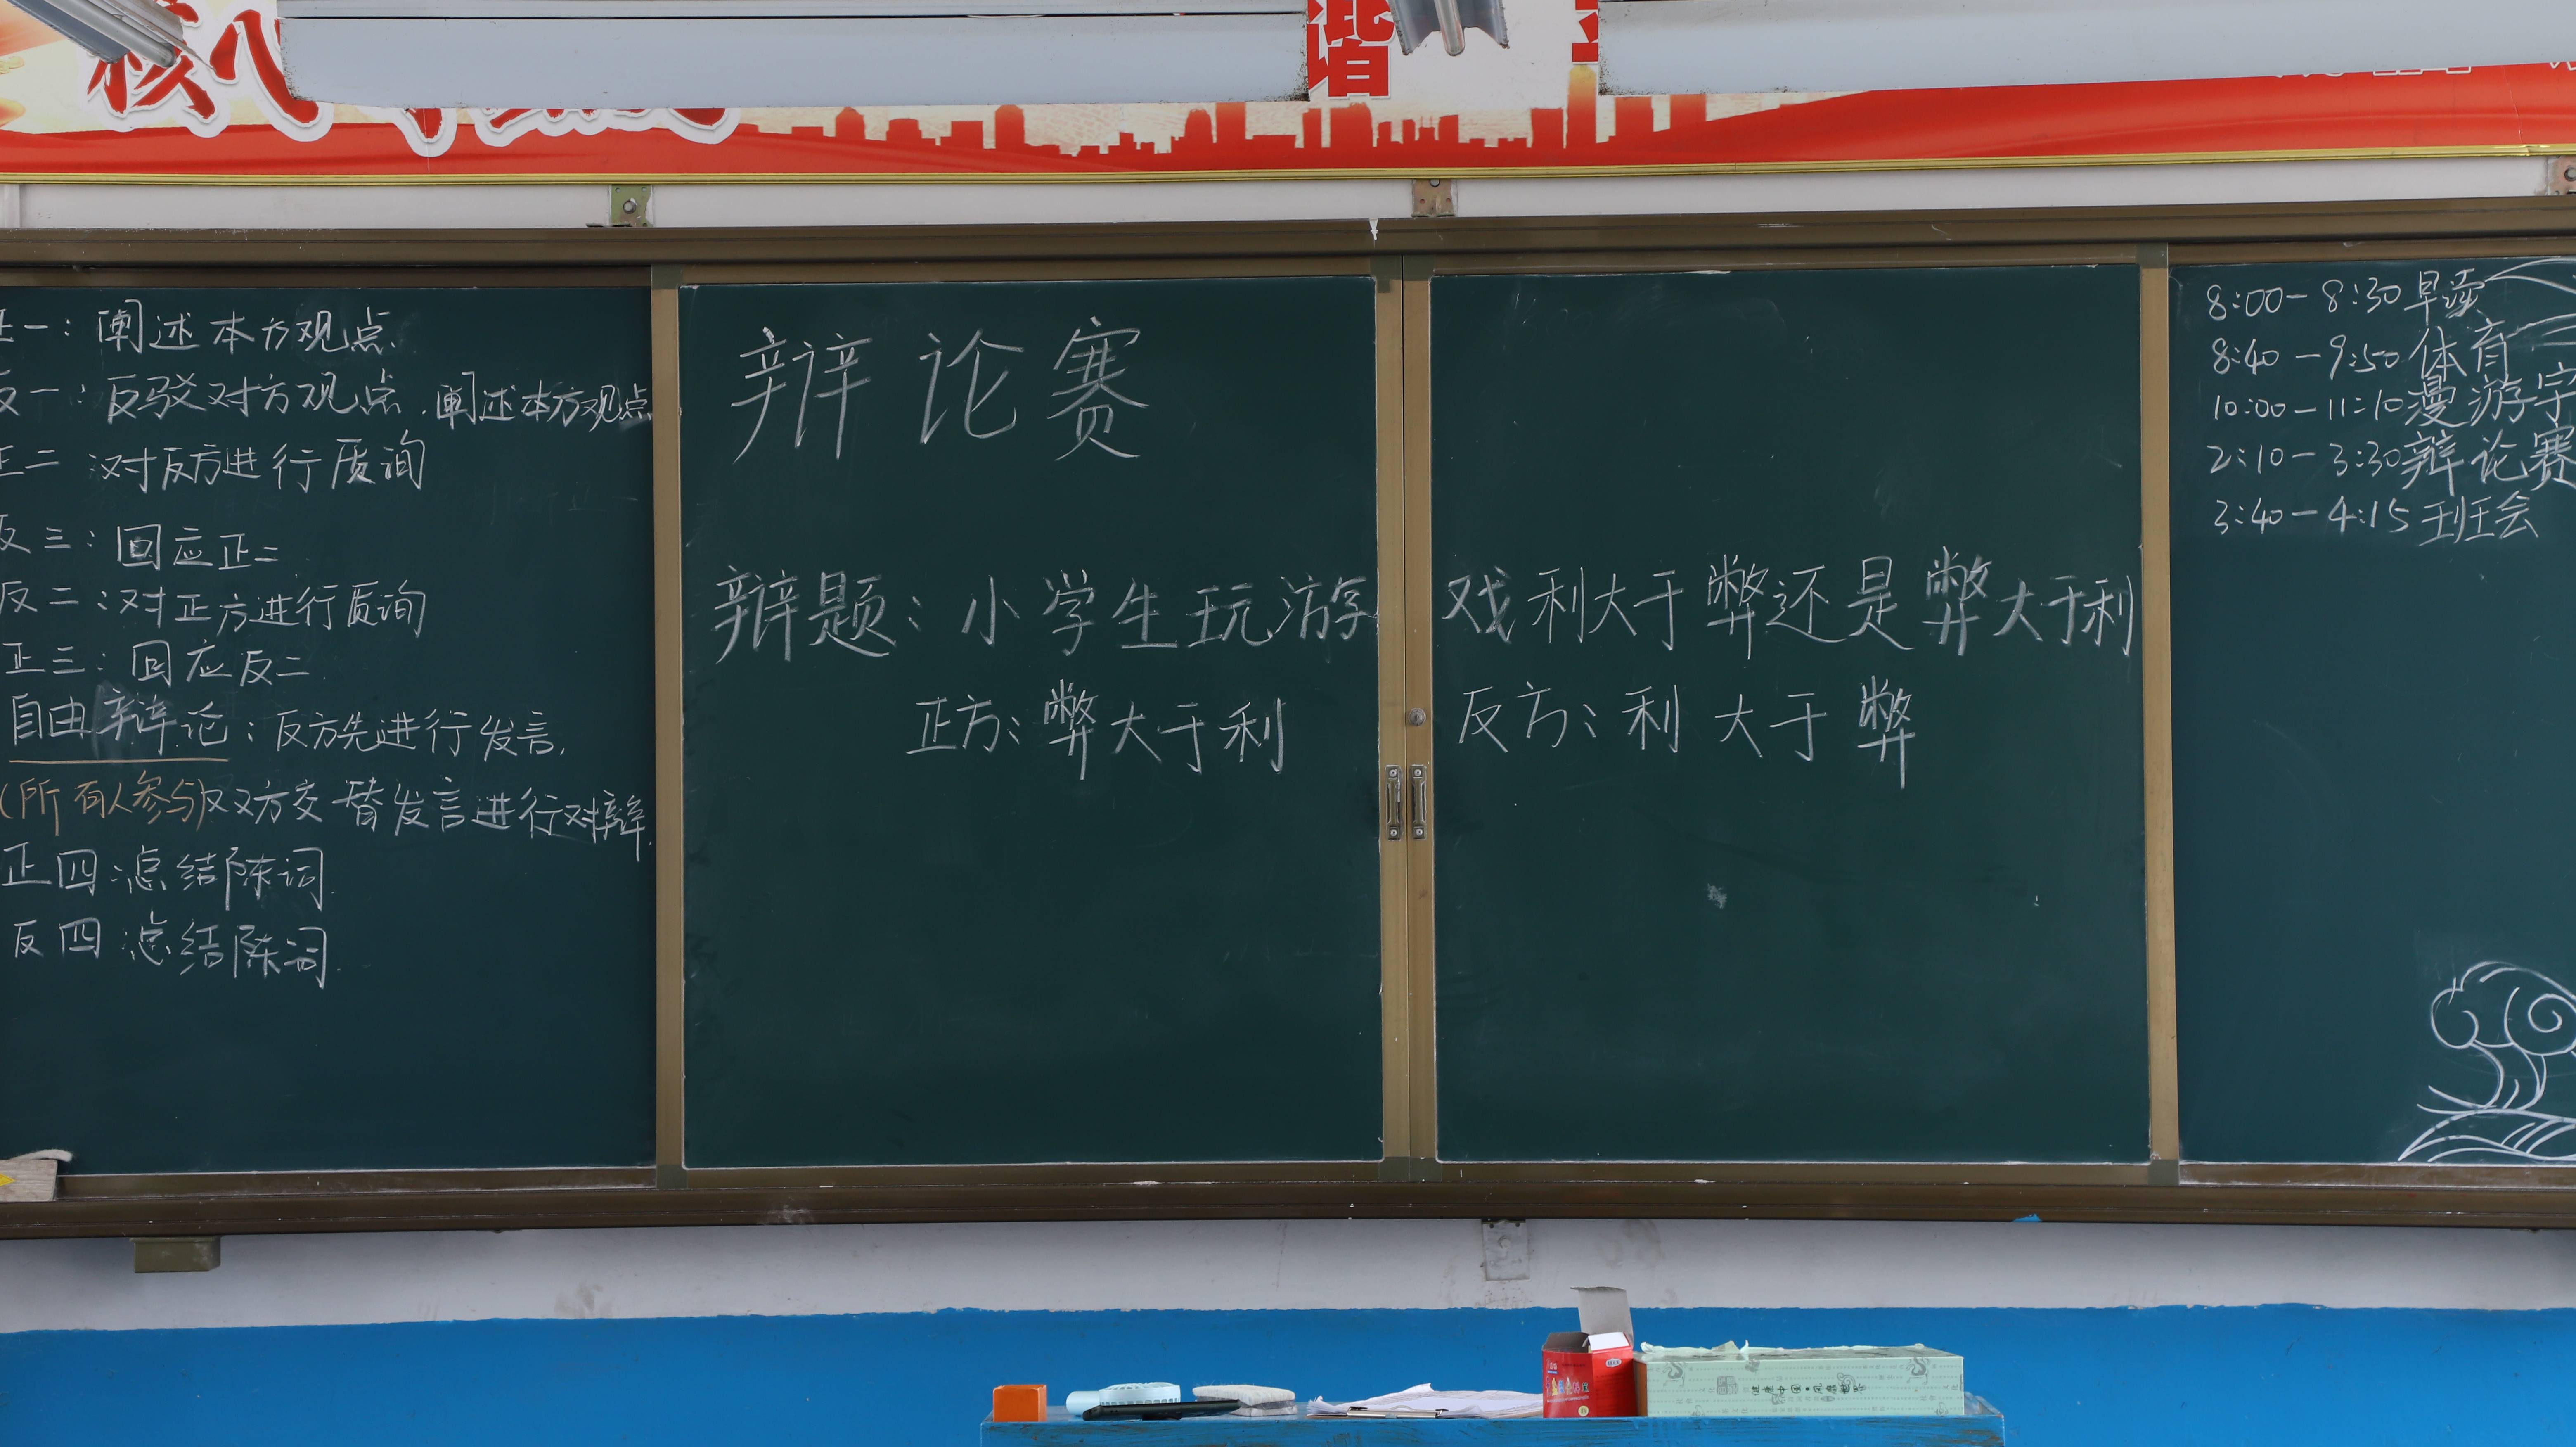 核心
谐
正一：阐述本方观点
反一：反驳对方观点．阐述本方观点
正二：对反方进行质询
反三：回应正二
反二：对正方进行质询
正三：回应反二
自由辩论：反方先进行发言．
（所有人参与）双方交替发言进行对辩．
正四：总结陈词．
反四：总结陈词．
辩论赛
辩题：小学生玩游戏利大于弊还是弊大于利
正方：弊大于利 反方：利大于弊
8:00-8:30早读
8:40-9:50体育
10:00-11:10漫游宇
2:10-3:30辩论赛
3:40-4:15班会